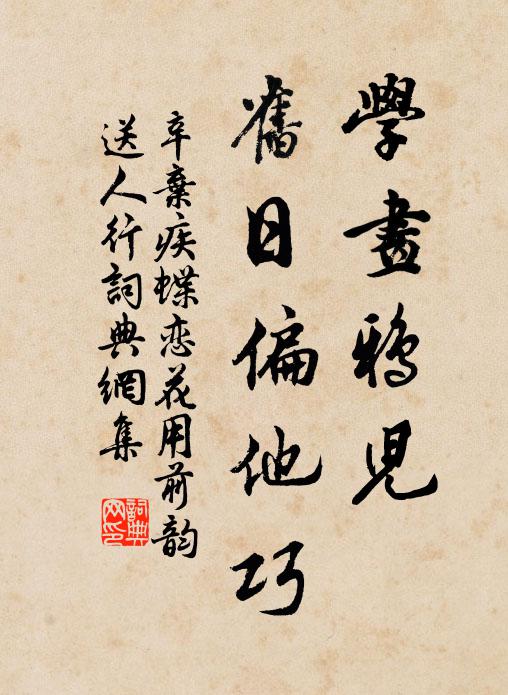 學畫鴉兒
舊日偏他巧
辛棄疾蝶恋花用前韵
送人行詞典網集
詞典网印